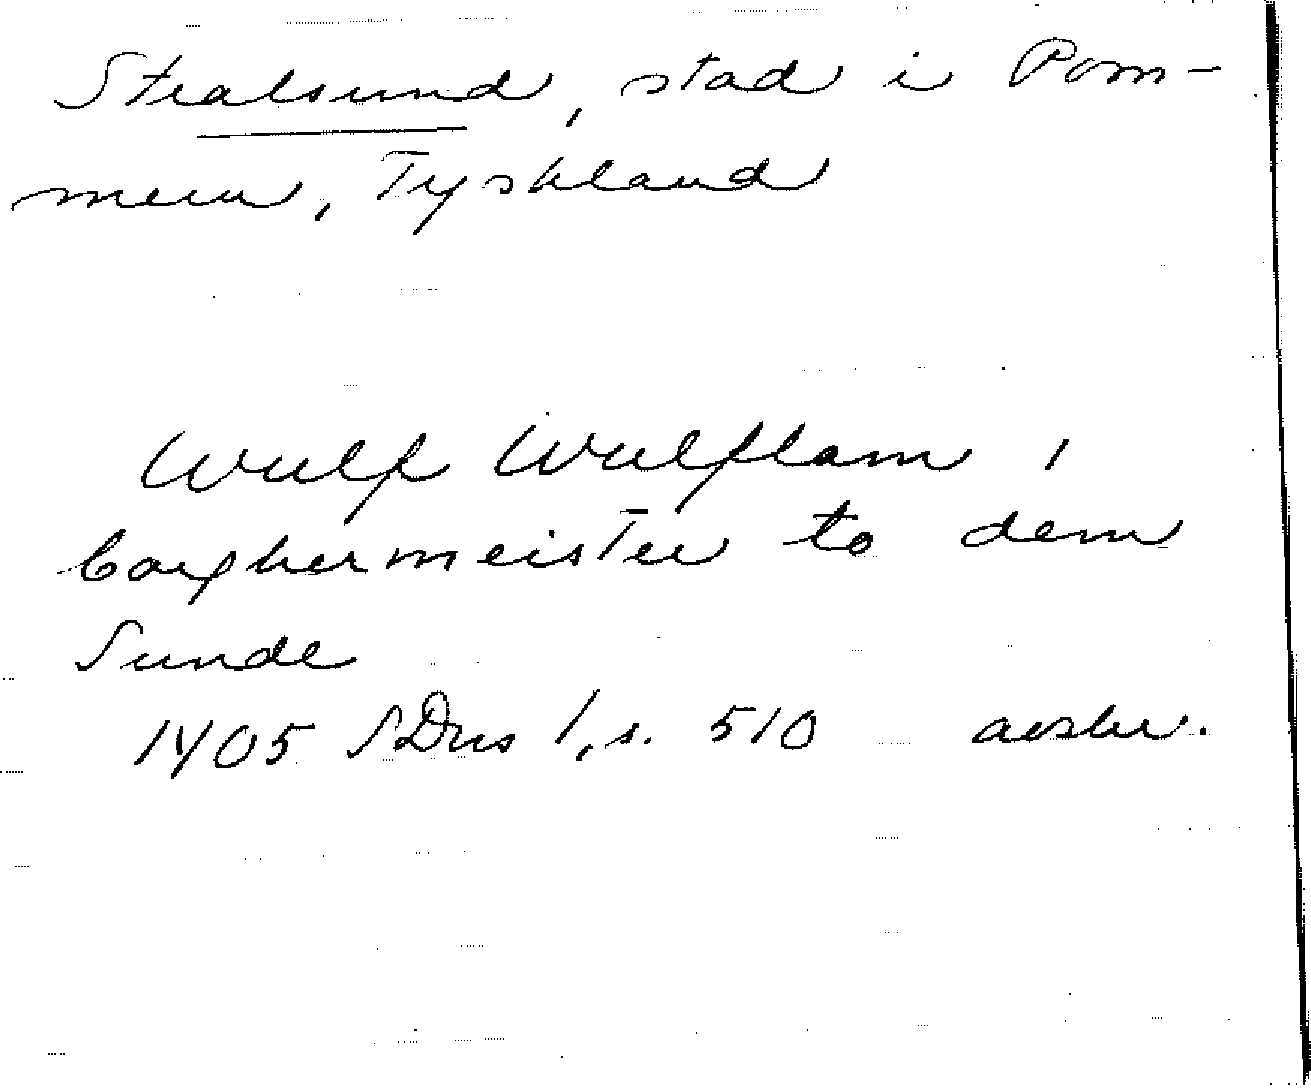 Stralsund, stad i Pom-
mern, Tyskland
Wulf Wulflam,
borghermeister to dem
Sunde
1405 SDns 1, s. 510 avskr.